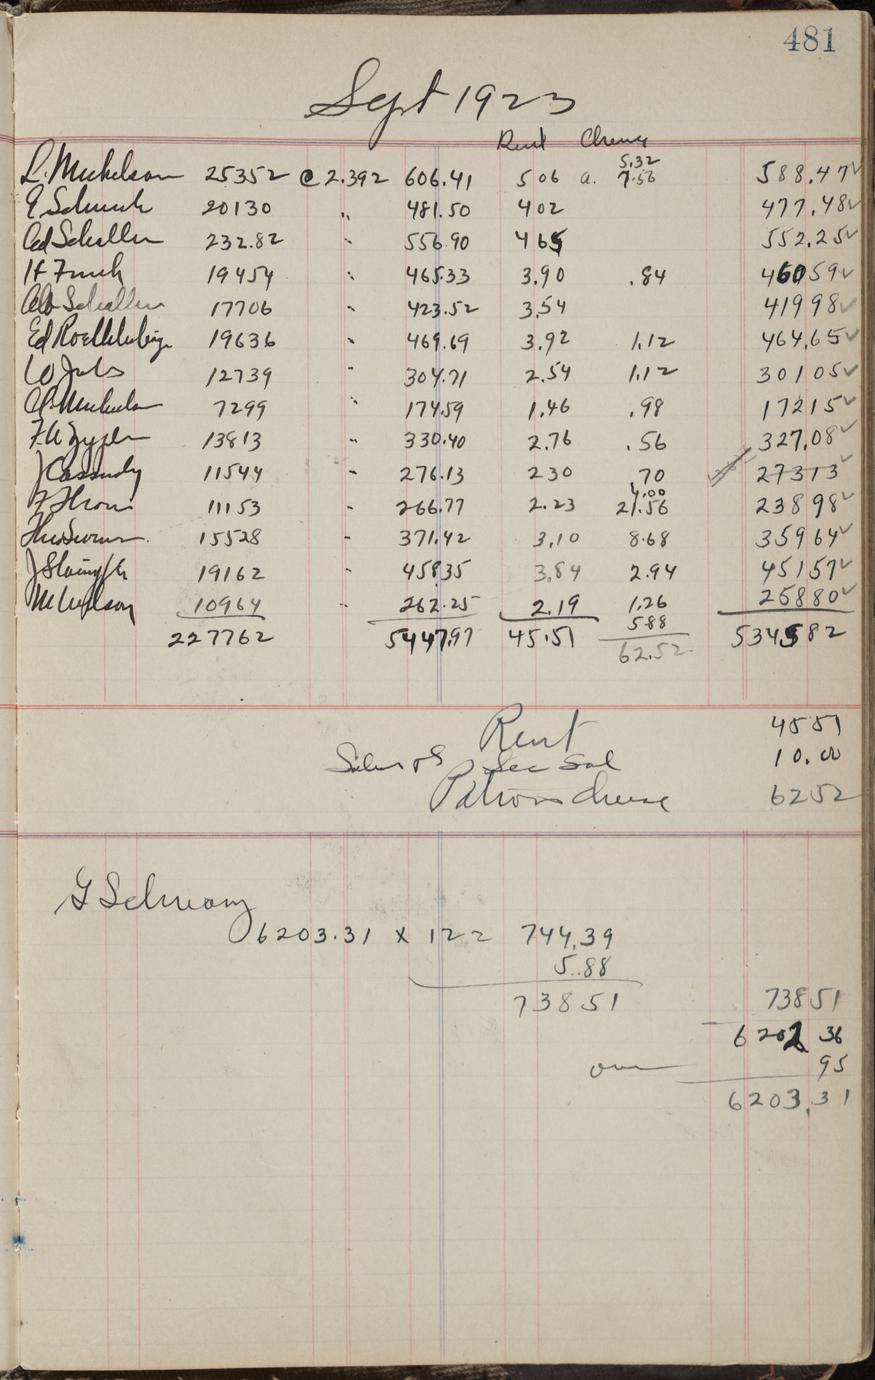 481
Sept 1923
Rent Cheese
5.32
L. Mickelson 25352 @ 2.392 606.41 506 a. 7.56 588.47 ✓
20130 " 481.50 402 477.48 ✓
Ed Schaller 232.82 " 556.90 465 552.25 ✓
H Funk 19454 " 465.33 3.90 .84 46059 ✓
Alb Schaller 17706 " 423.52 3.54 41998 ✓
Ed 19636 " 469.69 3.92 1.12 464.65 ✓
W 12739 " 304.71 2.54 1.12 30105 ✓
7299 " 17459 1.46 .98 17215 ✓
F.A. 13813 " 330.40 2.76 .56 327.08 ✓
J Cassudy 11544 " 276.13 230 70 27313 ✓
4.00
F Thom 11153 " 266.77 2.23 21.56 23898 ✓
15528 " 371.42 3.10 8.68 35964 ✓
J 19162 " 45835 3.84 2.94 45157 ✓
M Nelson 10964 " 262.25 2.19 1.26 25880 ✓
588
227762 544797 45.51 62.52 534582
Rent 4551
Sec Sal 10.00
Patrons cheese 6252
G Schwarz
6203.31 x 122 744.39
5.88
73851 73851
6202 36
over 95
6203.31